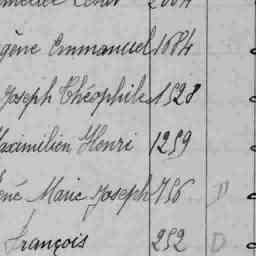 Eugène Emmanuel 1684
Joseph Théophile 1528
Maximilien Henri 1259
René Marie Joseph 756 D
François 252 D